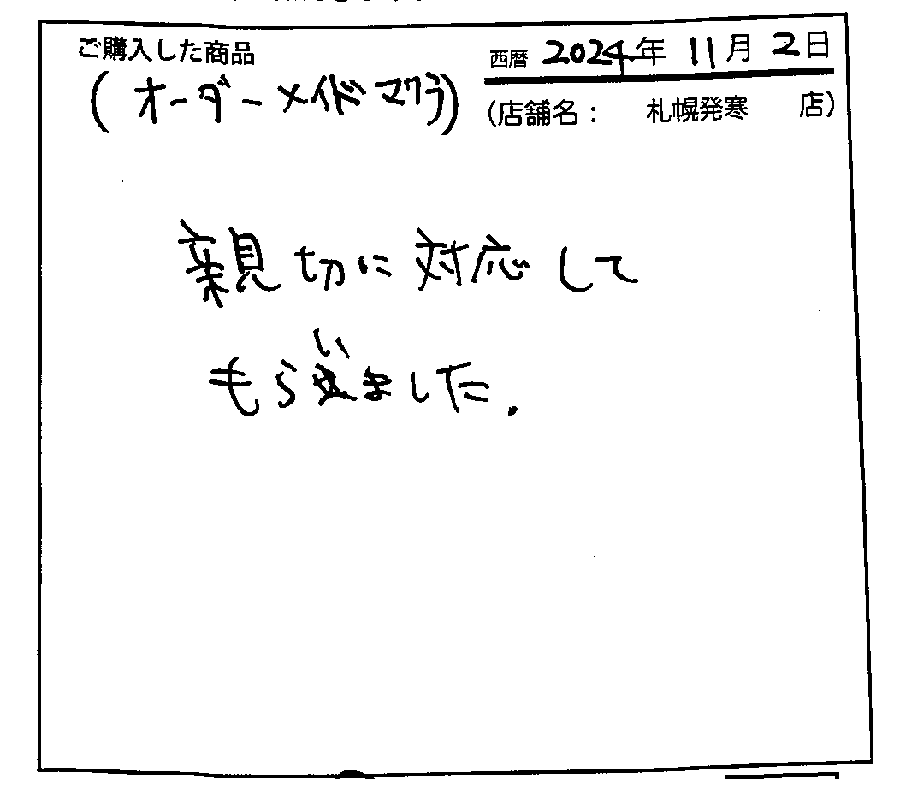 ご購入した商品
(オーダーメイドマクラ)
西暦 2024年 11月 2日
(店舗名： 札幌発寒 店)
親切に対応して
もらいました.